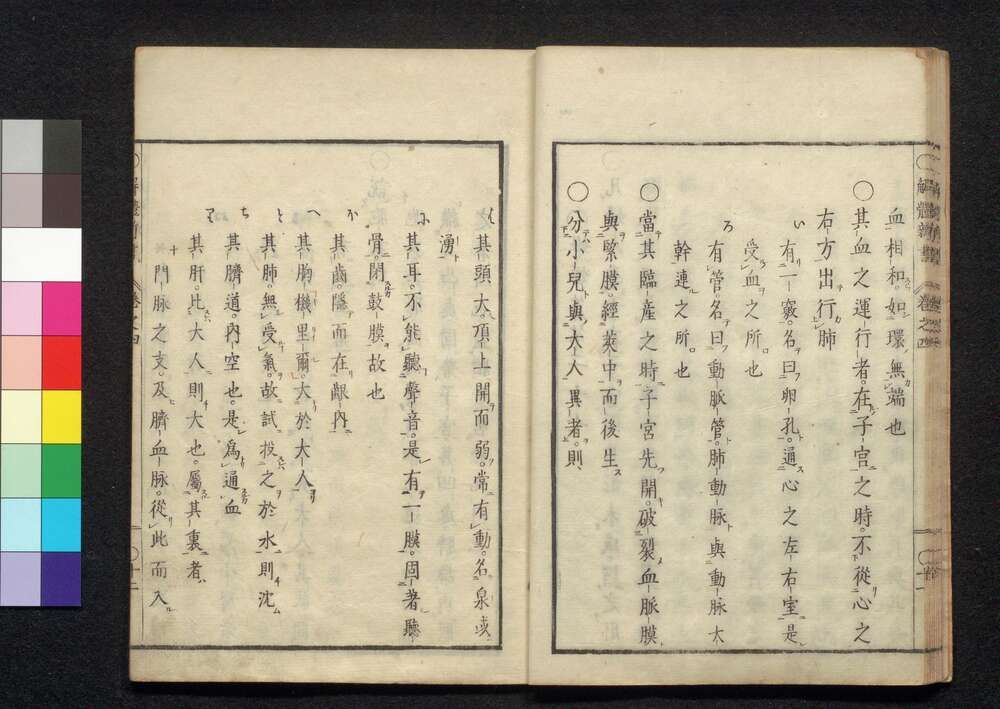 血相和。如環無端也
〇其血之運行者。在子宮之時。不從心之
右方出行肺
い有一竅。名曰卵孔。通心之左右室是
受血之所。也
ろ有管。名曰動脈管。肺動脈與動脈大
幹連之所。也
〇當其臨産之時。子宮先開。破裂血脈膜
與緊膜。經莢中而後生
〇分小兒與大人異者。則
は其頭大。頂上開而弱。常有動。名泉或
湧
に其耳。不能聽聲音。是有一膜。固著聽
骨。閉鼓膜故也
ほ其齒。隱而在齦內
へ其胸機里爾。大於大人
と其肺。無受氣。故試投之於水則沈
ち其臍道。內空也。是爲通血
り其肝。比大人則大也。屬其裏者、
門脈之支。及臍血脈。從此而入
解體新書
卷之四
十一
卷之四
十二